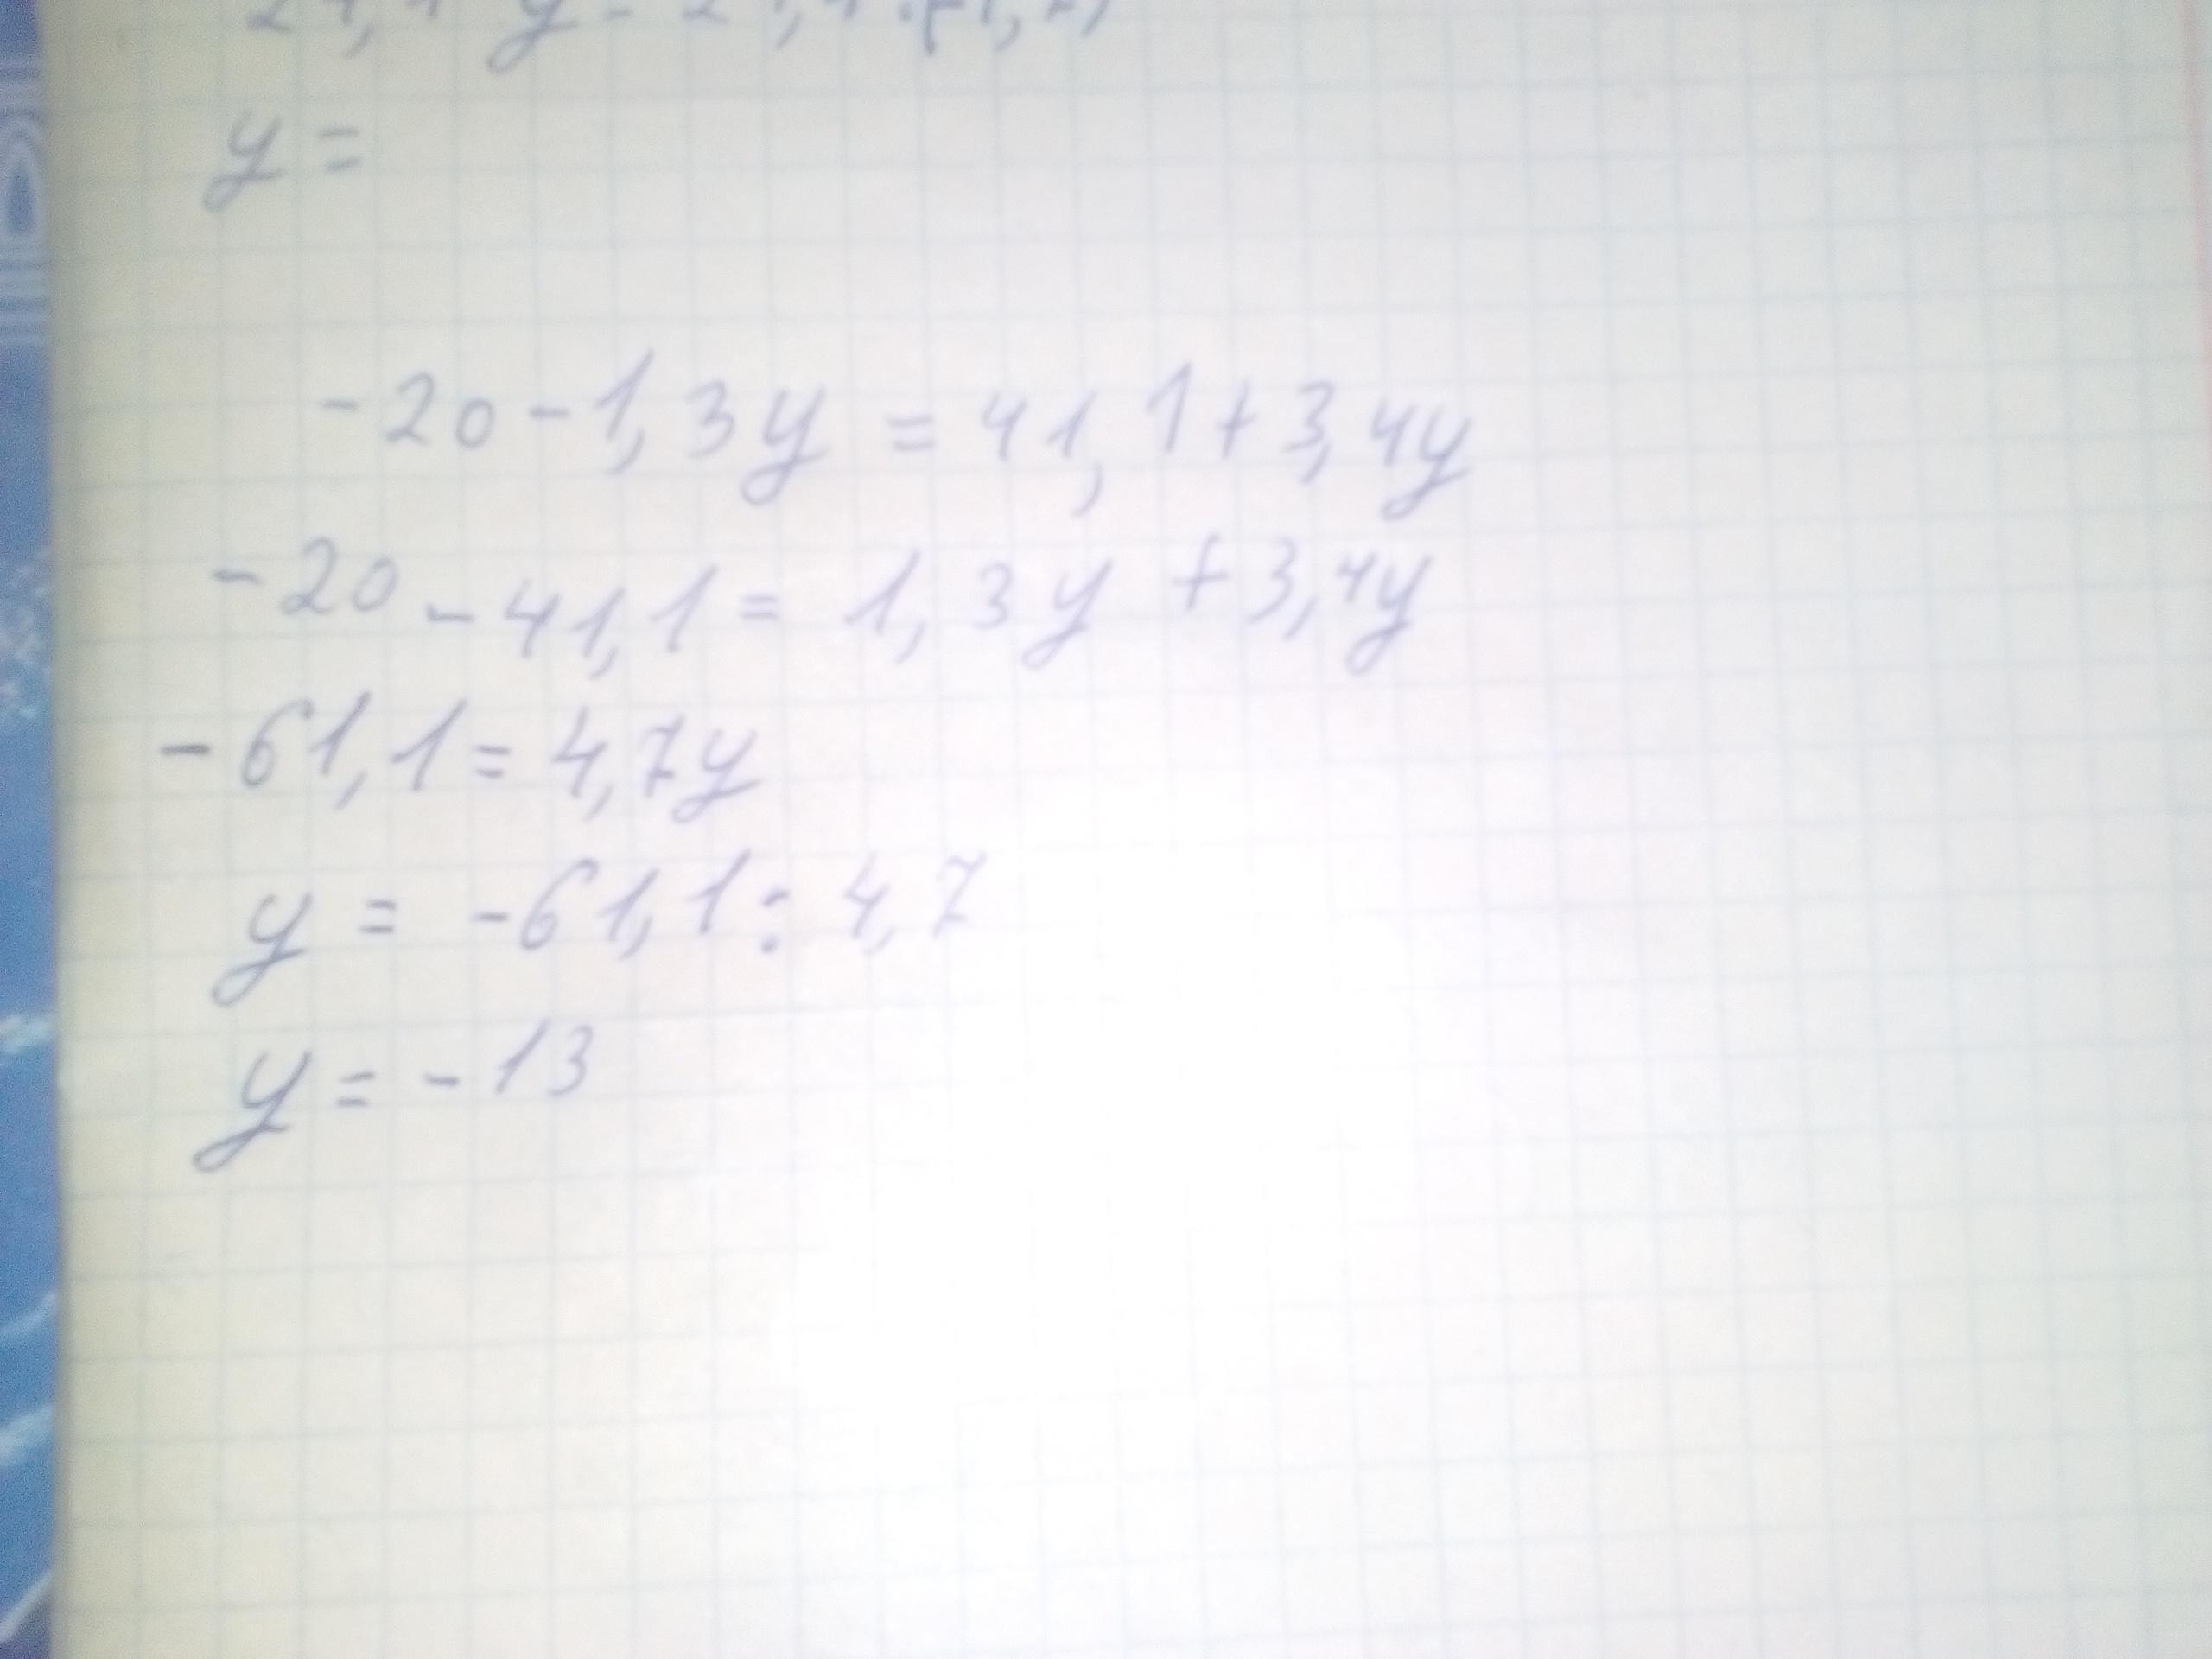 y =
-20 - 1,3y = 41,1 + 3,4y
-20 - 41,1 = 1,3y + 3,4y
-61,1 = 4,7y
y = -61,1 : 4,7
y = -13